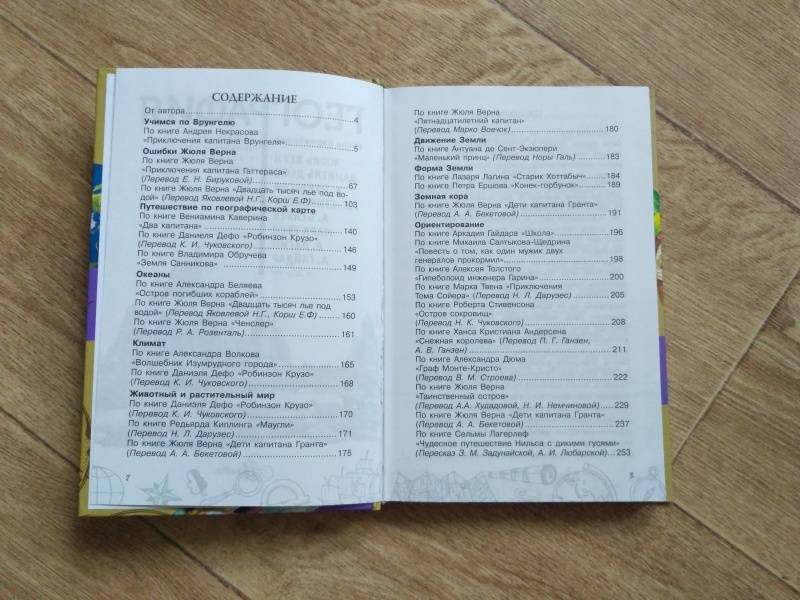 СОДЕРЖАНИЕ
От автора ........ 4
Учимся по Врунгелю
По книге Андрея Некрасова
«Приключения капитана Врунгеля» ........ 5
Ошибки Жюля Верна
По книге Жюля Верна
«Приключения капитана Гаттераса»
(Перевод Е. Н. Бируковой) ........ 67
По книге Жюля Верна «Двадцать тысяч лье под во-
дой» (Перевод Яковлевой Н.Г., Корш Е.Ф) ........ 103
Путешествие по географической карте
По книге Вениамина Каверина
«Два капитана» ........ 140
По книге Даниеля Дефо «Робинзон Крузо»
(Перевод К. И. Чуковского) ........ 146
По книге Владимира Обручева
«Земля Санникова» ........ 149
Океаны
По книге Александра Беляева
«Остров погибших кораблей» ........ 153
По книге Жюля Верна «Двадцать тысяч лье под
водой» (Перевод Яковлевой Н.Г., Корш Е.Ф) ........ 160
По книге Жюля Верна «Ченслер»
(Перевод Р. А. Розенталь) ........ 161
Климат
По книге Александра Волкова
«Волшебник Изумрудного города» ........ 165
По книге Даниэля Дефо «Робинзон Крузо»
(Перевод К. И. Чуковского) ........ 168
Животный и растительный мир
По книге Даниэля Дефо «Робинзон Крузо»
(Перевод К. И. Чуковского) ........ 170
По книге Редьярда Киплинга «Маугли»
(Перевод Н. Л. Дарузес) ........ 171
По книге Жюля Верна «Дети капитана Гранта»
(Перевод А. А. Бекетовой) ........ 175
По книге Жюля Верна
«Пятнадцатилетний капитан»
(Перевод Марко Вовчок) ........ 180
Движение Земли
По книге Антуана де Сент-Экзюпери
«Маленький принц» (Перевод Норы Галь) ........ 183
Форма Земли
По книге Лазаря Лагина «Старик Хоттабыч» ........ 184
По книге Петра Ершова «Конек-горбунок» ........ 189
Земная кора
По книге Жюля Верна «Дети капитана Гранта»
(Перевод А. А. Бекетовой) ........ 191
Ориентирование
По книге Аркадия Гайдара «Школа» ........ 196
По книге Михаила Салтыкова-Щедрина
«Повесть о том, как один мужик двух
генералов прокормил» ........ 198
По книге Алексея Толстого
«Гипеболоид инженера Гарина» ........ 200
По книге Марка Твена «Приключения
Тома Сойера» (Перевод Н. Л. Дарузес) ........ 205
По книге Роберта Стивенсона
«Остров сокровищ»
(Перевод Н. К. Чуковского) ........ 208
По книге Ханса Кристиана Андерсена
«Снежная королева» (Перевод П. Г. Ганзен,
А. В. Ганзен) ........ 211
По книге Александра Дюма
«Граф Монте-Кристо»
(Перевод В. М. Строева) ........ 222
По книге Жюля Верна
«Таинственный остров»
(Перевод А.А. Худадовой, Н. И. Немчиновой) ........ 229
По книге Жюля Верна «Дети капитана Гранта»
(Перевод А. А. Бекетовой) ........ 237
По книге Сельмы Лагерлеф
«Чудесное путешествие Нильса с дикими гусями»
(Пересказ З. М. Задунайской, А. И. Любарской) ........ 253